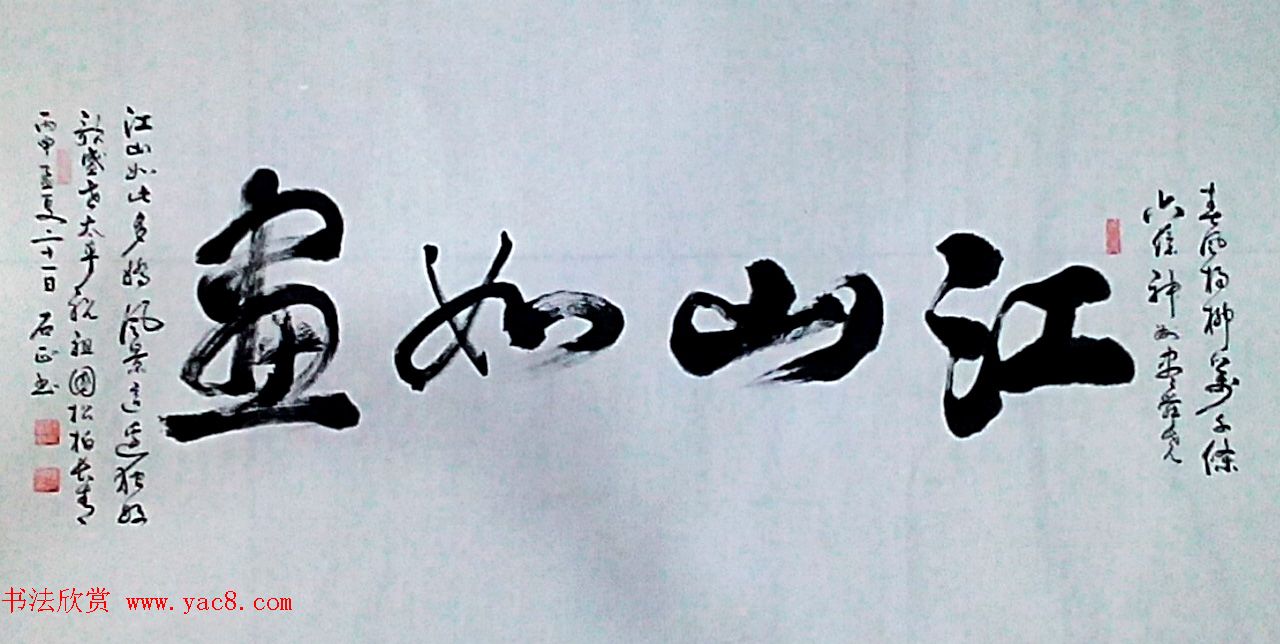 春风杨柳万千条
六亿神州尽舜尧
江山如画
江山如此多娇风景这边独好
歌盛世太平祝祖国松柏长青
丙申孟夏二十一日 石正书
书法欣赏 www.yac8.com